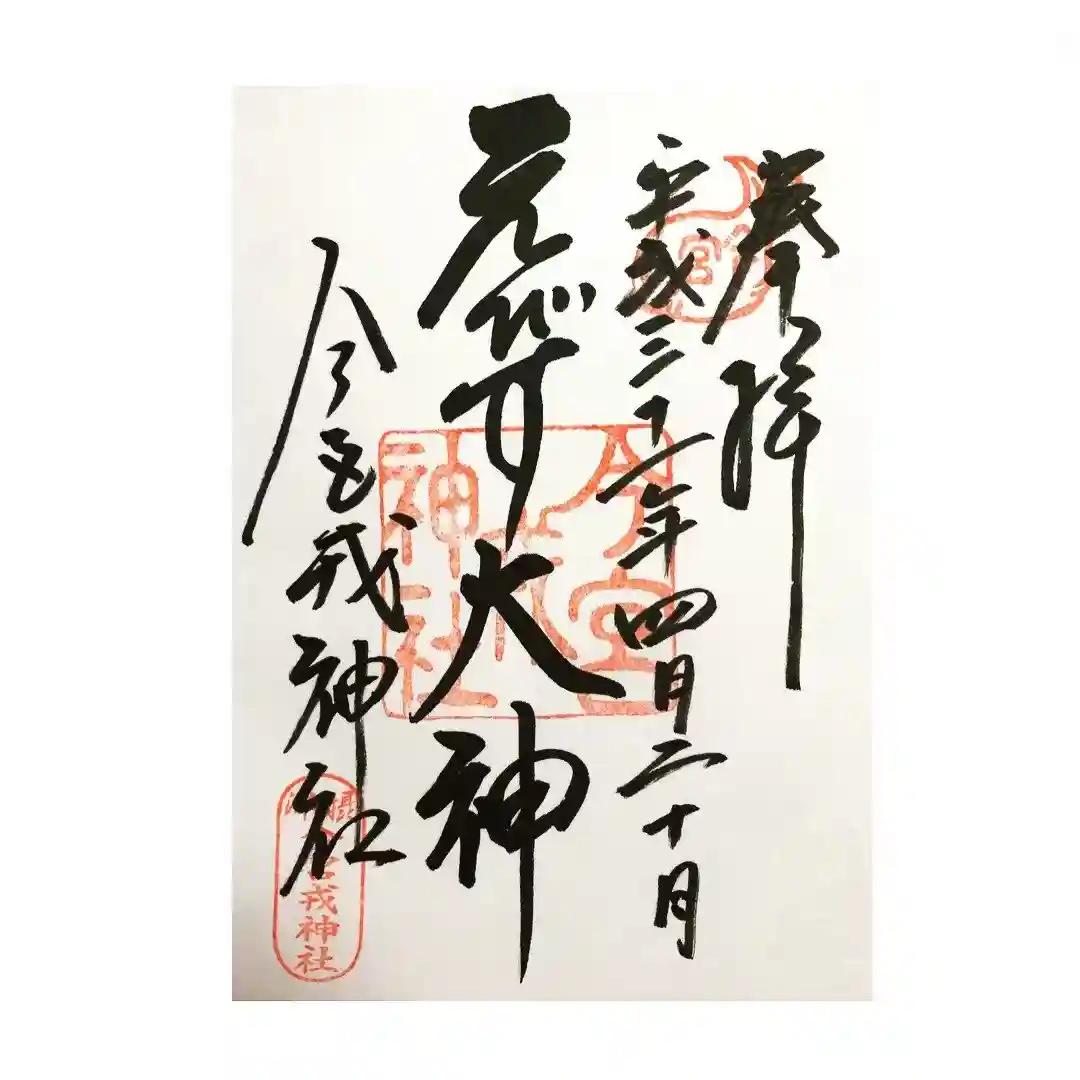 奉拝
平成三十一年四月二十日
えびす大神
今宮戎神社
今宮戎神社
宮戎神社